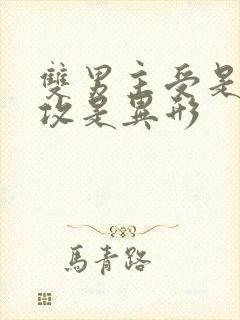 雙男主受是
攻是異形
馬青路